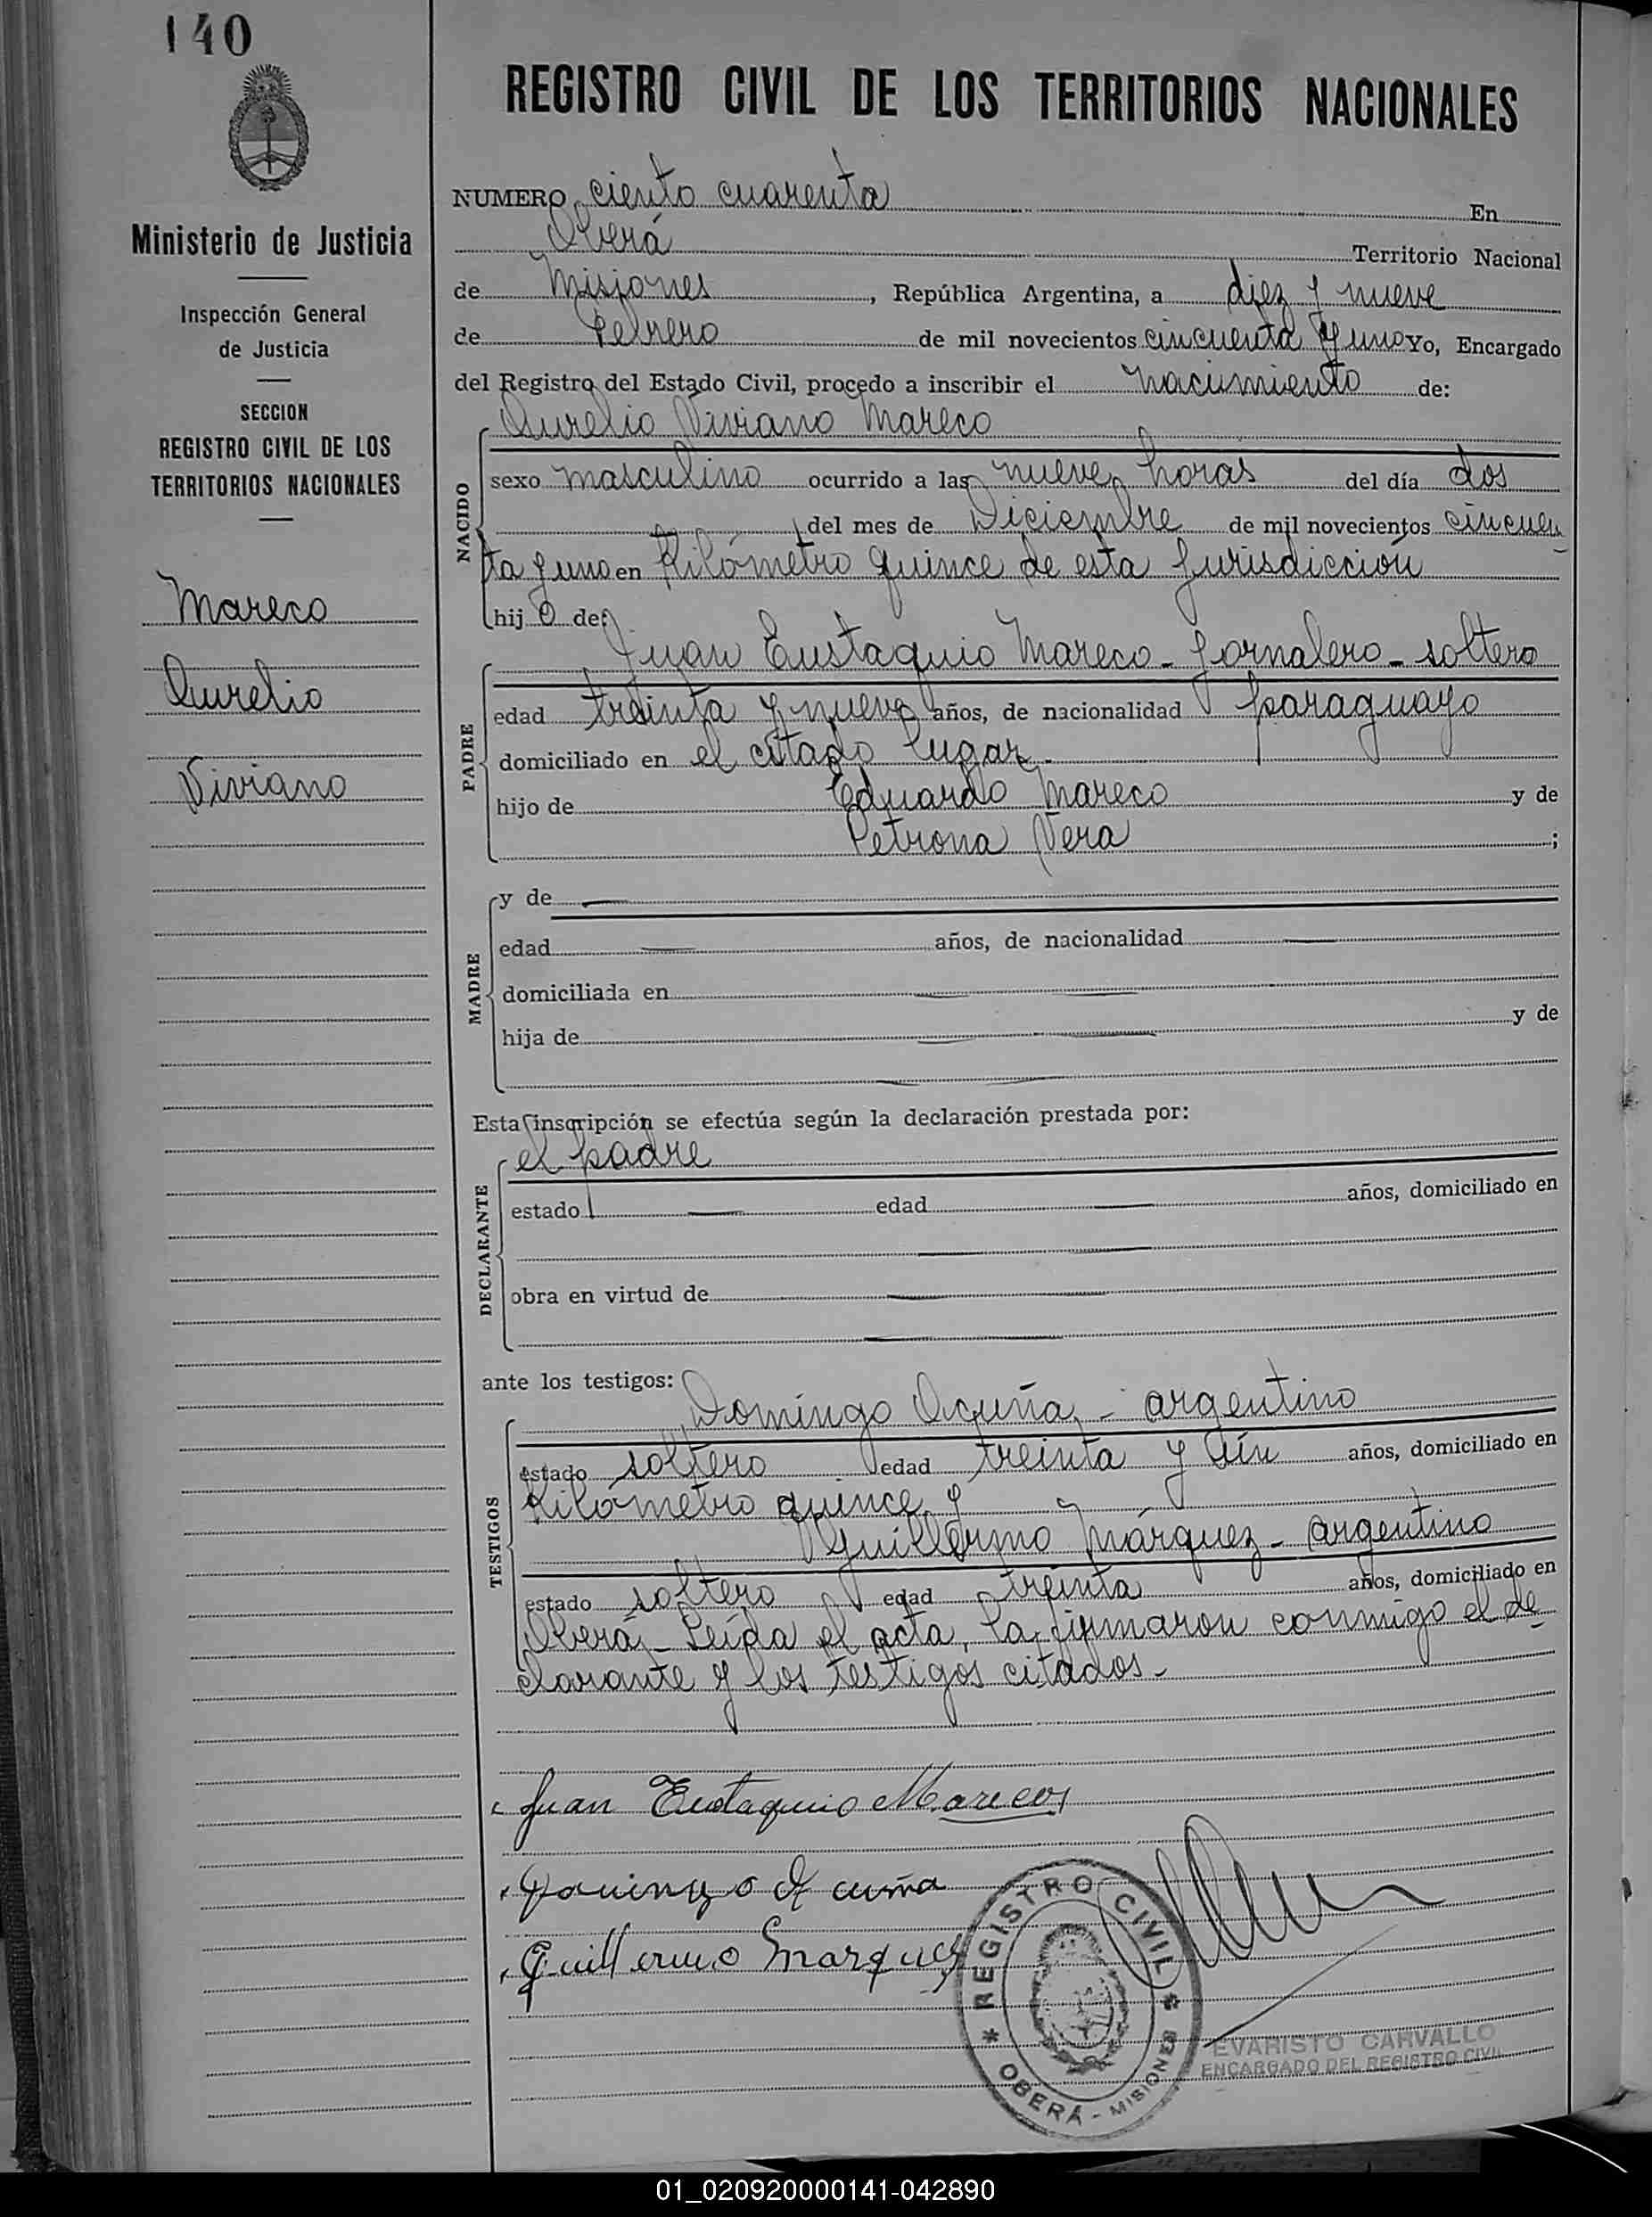 140
REGISTRO CIVIL DE LOS TERRITORIOS NACIONALES
Ministerio de Justicia
Inspección General
de Justicia
SECCION
REGISTRO CIVIL DE LOS
TERRITORIOS NACIONALES
Mareco
Aurelio
Viviano
NUMERO ciento cuarenta En
Oberá Territorio Nacional
de Misiones, República Argentina, a diez y nueve
de Febrero de mil novecientos cincuenta y uno Yo, Encargado
del Registro del Estado Civil, procedo a inscribir el nacimiento de:
Aurelio Viviano Mareco
NACIDO
sexo masculino ocurrido a las nueve horas del día dos
del mes de Diciembre de mil novecientos cincuen
ta y uno en Kilómetro quince de esta Jurisdicción
hijo de:
Juan Eustaquio Mareco - Jornalero - soltero
PADRE
edad treinta y nueve años, de nacionalidad paraguayo
domiciliado en el citado lugar.
hijo de Eduardo Mareco y de
Petrona Vera ;
MADRE
y de —
edad — años, de nacionalidad —
domiciliada en —
hija de — y de
Esta inscripción se efectúa según la declaración prestada por:
el padre
DECLARANTE
estado — edad — años, domiciliado en
obra en virtud de —
ante los testigos:
Domingo Acuña, - argentino
TESTIGOS
estado soltero edad treinta y ún años, domiciliado en
Kilómetro quince y
Guillermo Márquez - argentino
estado soltero edad treinta años, domiciliado en
Oberá - Leída el acta, la firmaron conmigo el de
clarante y los testigos citados -
Juan Eustaquio Marecos
Domingo Acuña
Guillermo Marquez
* REGISTRO CIVIL *
OBERÁ - MISIONES
EVARISTO CARVALLO
ENCARGADO DEL REGISTRO CIVIL
01_020920000141-042890